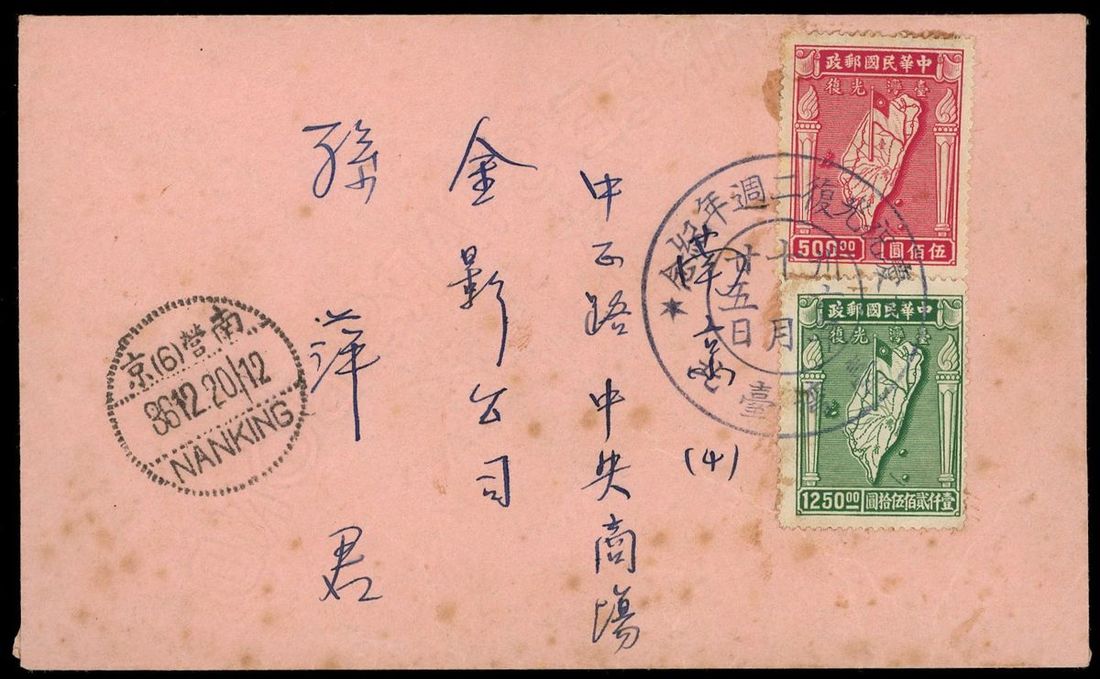 中華民國郵政
臺灣光復
伍佰圓
500.00
中華民國郵政
臺灣光復
壹仟貳佰伍拾圓
1250.00
臺灣光復二週年紀念
十月
廿五日
臺
(4)
中正路中央商場
金影公司
孫萍君
南營(6)京
36.12.20.12
NANKING